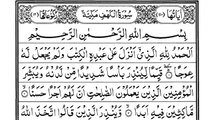 اٰيَاتُهَا سُوْرَةُ الْكَهْفِ مَكِّيَّةٌ رُكُوْعَاتُهَا
بِسْمِ اللهِ الرَّحْمٰنِ الرَّحِيْمِ
اَلْحَمْدُ لِلّٰهِ الَّذِيْٓ اَنْزَلَ عَلٰى عَبْدِهِ الْكِتٰبَ وَلَمْ يَجْعَلْ لَّهٗ
عِوَجًا قَيِّمًا لِّيُنْذِرَ بَاْسًا شَدِيْدًا مِّنْ لَّدُنْهُ وَيُبَشِّرَ
الْمُؤْمِنِيْنَ الَّذِيْنَ يَعْمَلُوْنَ الصّٰلِحٰتِ اَنَّ لَهُمْ اَجْرًا حَسَنًا
مَّاكِثِيْنَ فِيْهِ اَبَدًا وَّيُنْذِرَ الَّذِيْنَ قَالُوا اتَّخَذَ اللهُ